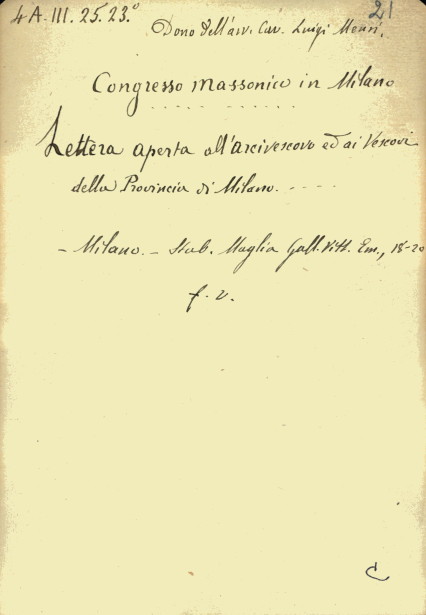 4 A. III. 25. 23.°
21
Dono dell'avv. Cav. Luigi
Congresso massonico in Milano
Lettera aperta all'arcivescovo ed ai Vescovi
della Provincia di Milano.
- Milano. - Stab. Maglia Gall. Vitt. Em., 18-20
f. v.
C